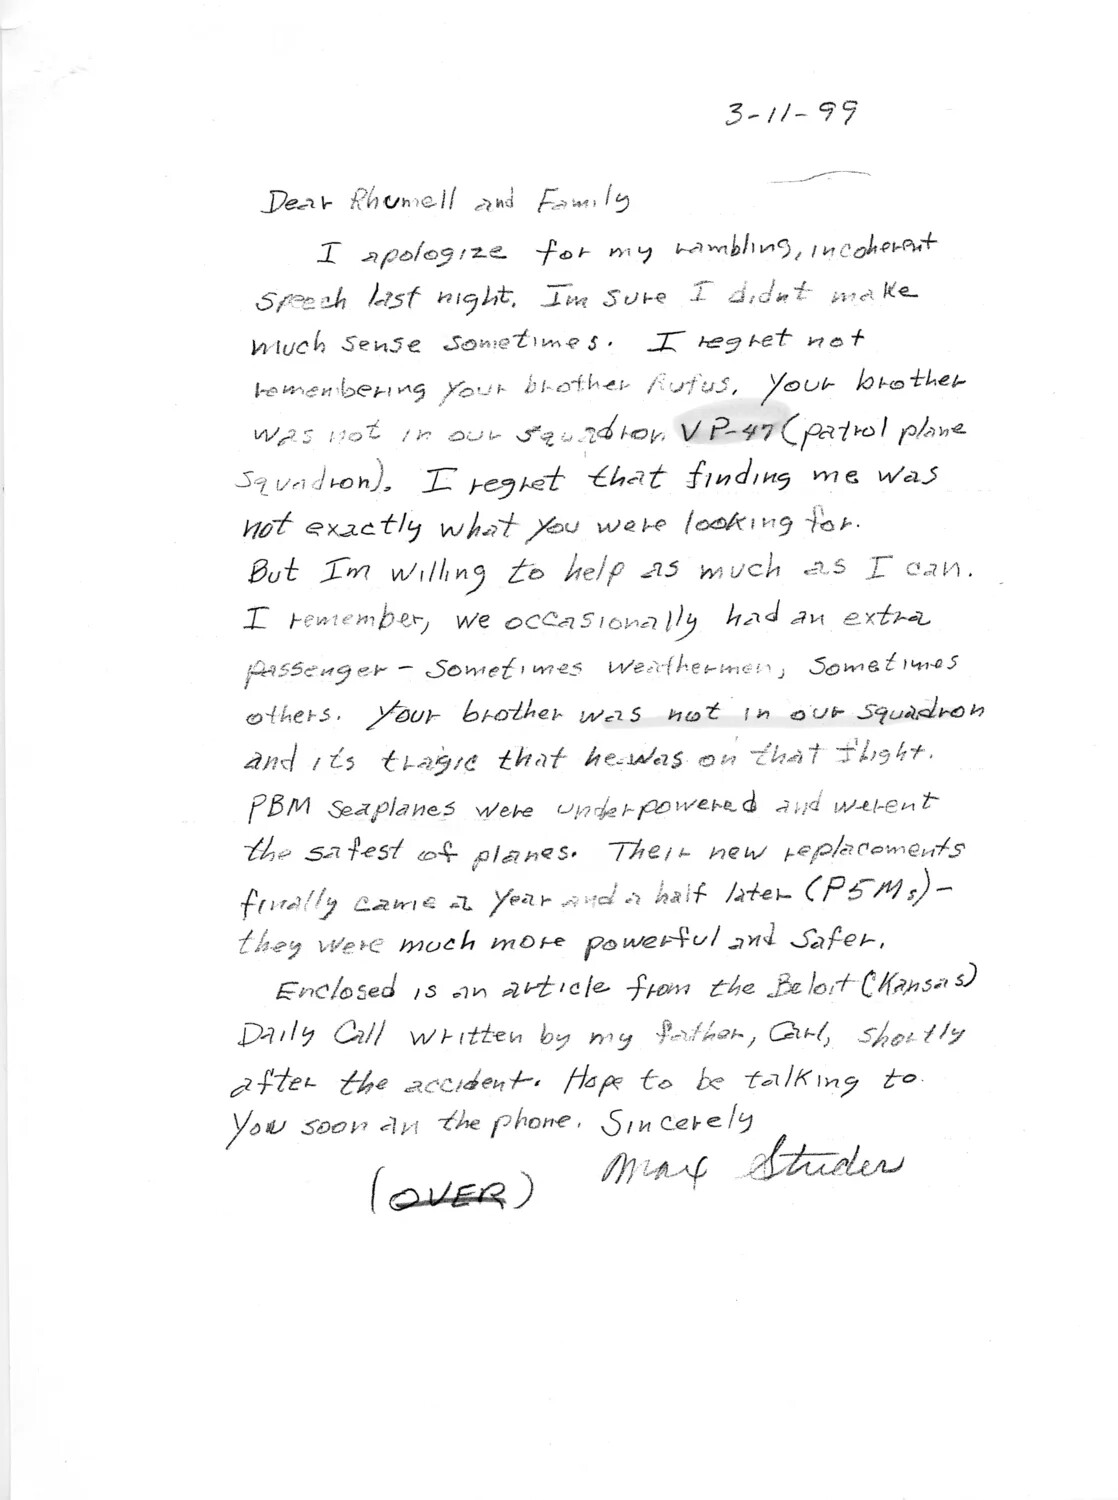 3-11-99
Dear Rhumell and Family
I apologize for my rambling, incoherent
speech last night. Im sure I didnt make
much sense sometimes. I regret not
remembering your brother Rufus. Your brother
was not in our squadron VP-47 (patrol plane
squadron). I regret that finding me was
not exactly what you were looking for.
But Im willing to help as much as I can.
I remember, we occasionally had an extra
passenger - sometimes weathermen, sometimes
others. Your brother was not in our squadron
and its tragic that he was on that flight.
PBM seaplanes were underpowered and werent
the safest of planes. Their new replacements
finally came a year and a half later (P5Ms) -
they were much more powerful and safer.
Enclosed is an article from the Beloit (Kansas)
Daily Call written by my father, Carl, shortly
after the accident. Hope to be talking to
you soon on the phone. Sincerely
Max Studer
(OVER)